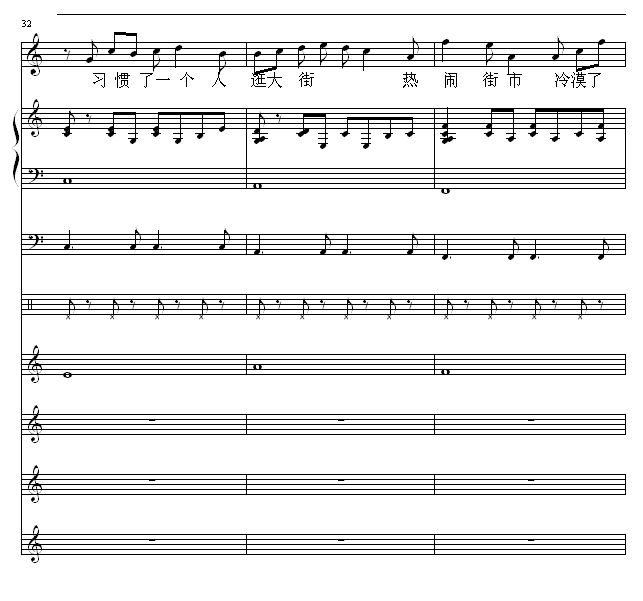 32
习惯了一个人 逛大街 热闹街市 冷漠了